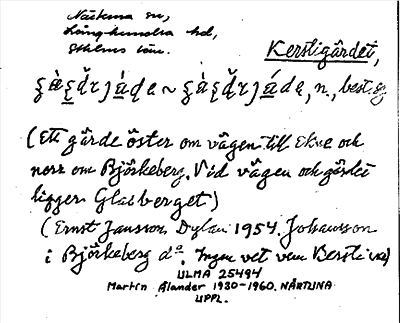 Närtuna sn,
Långhundra hd,
Sthlms län.
Kerstigärdet,
n., best. sg
(Ett gärde öster om vägen till Ekne och
norr om Björkeberg. Vid vägen och gärdet
ligger Glasberget)
(Ernst Jansson, Dylan 1954. Johansson
i Björkeberg d:o. Ingen vet vem Kersti var)
ULMA 25494
Martin Ålander 1930-1960. NÄRTUNA
UPPL.